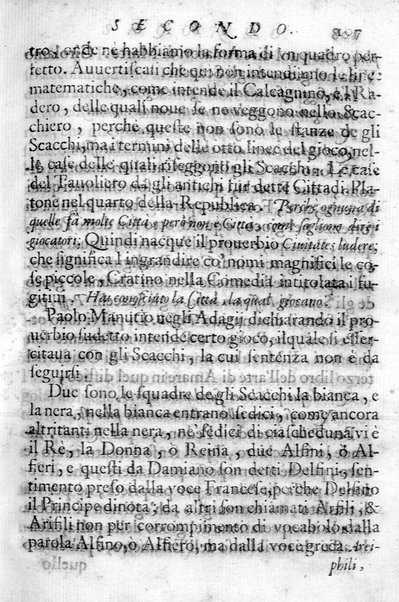 SECONDO. 107
tro; onde ne habbiamo la forma di vn quadro per-
fetto. Auuertiscasi che qui non intendiamo le linee
matematiche, come intende il Calcagnino, e'l Ra-
dero, delle quali noue se ne veggono nello Scac-
chiero, perche queste non sono le stanze de gli
Scacchi, ma i termini delle otto linee del gioco, nel-
le case delle quali riseggonti gli Scacchi. Le case
del Tauoliero da gli antichi fur dette Cittadi. Pla-
tone nel quarto della Republica. Perche ognuna di
quelle fà molte Città, e però non è Città, come sogliono dire i
giocatori; Quindi nacque il prouerbio Ciuitates ludere;
che significa l'ingrandire co' nomi magnifici le co-
se piccole, Cratino nella Comedia intitolata i fu-
gitiui. Hai conosciuto la Città, la qual giocano.
Paolo Manutio negli Adagij dichiarando il pro-
uerbio sudetto intende certo gioco, il qual si esser-
citaua con gli Scacchi, la cui sentenza non è da
seguirsi.
Due sono le squadre de gli Scacchi la bianca, e
la nera, nella bianca entrano sedici, com'ancora
altritanti nella nera, ne' sedici di ciascheduna vi è
il Rè, la Donna, ò Reina, due Alfini, ò Al-
fieri, e questi da Damiano son detti Delfini, sen-
timento preso dalla voce Francese, perche Delfino
il Principe dinota; da altri son chiamati Arfili, &
Arifili non per corrompimento di vocabolo dalla
parola Alfino, ò Alfiero, ma dalla voce greca. Ari-
phili,